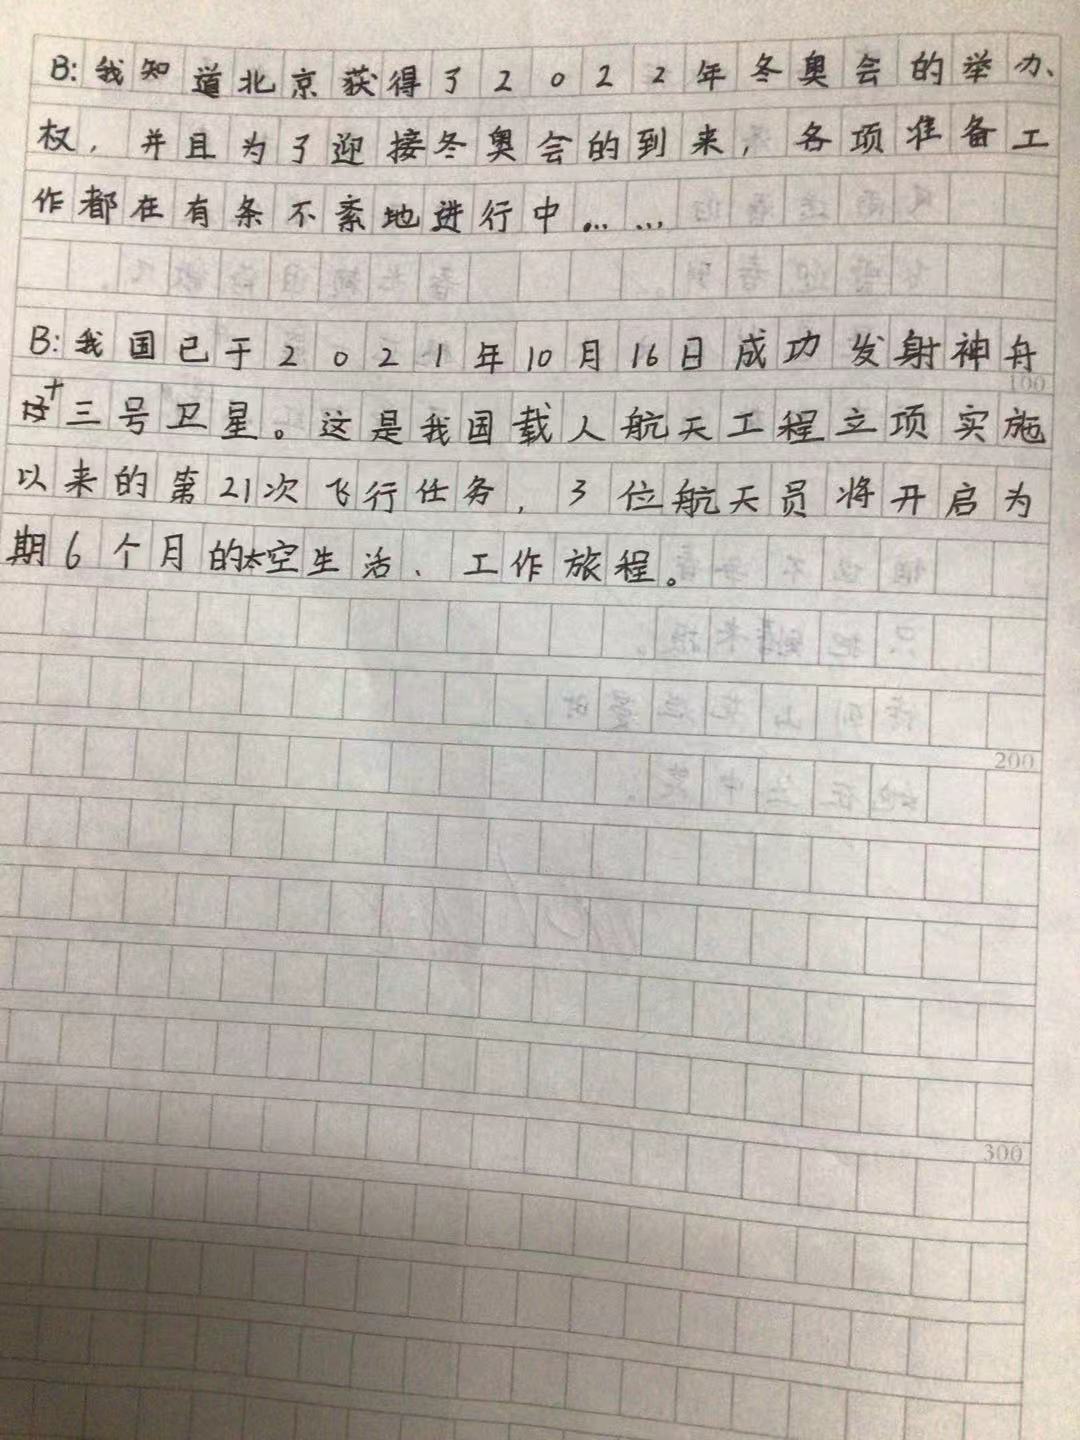 B:我知道北京获得了2022年冬奥会的举办、
权，并且为了迎接冬奥会的到来，各项准备工
作都在有条不紊地进行中……
B:我国已于2021年10月16日成功发射神舟
100
十三号卫星。这是我国载人航天工程立项实施
以来的第21次飞行任务，3位航天员将开启为
期6个月的太空生活、工作旅程。
200
300